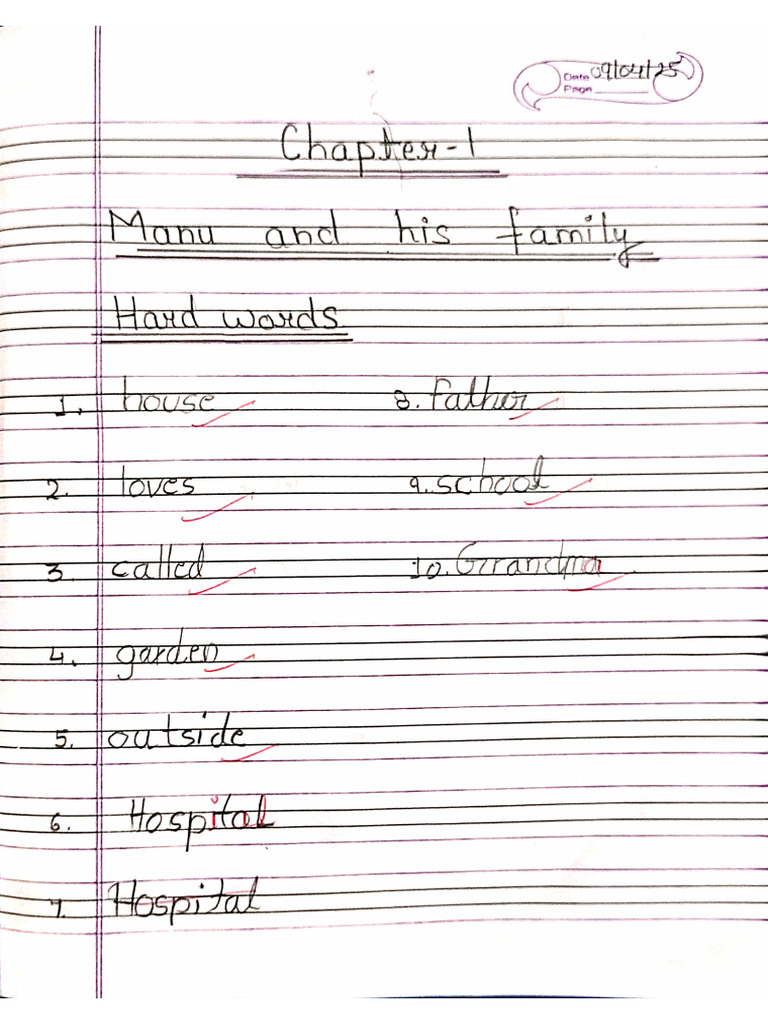 Date 09/04/25
Page
Chapter-1
Manu and his family
Hard words
1. house 8. Father
2. loves 9. school
3. called 10. Grandma
4. garden
5. outside
6. Hospital
7. Hospital